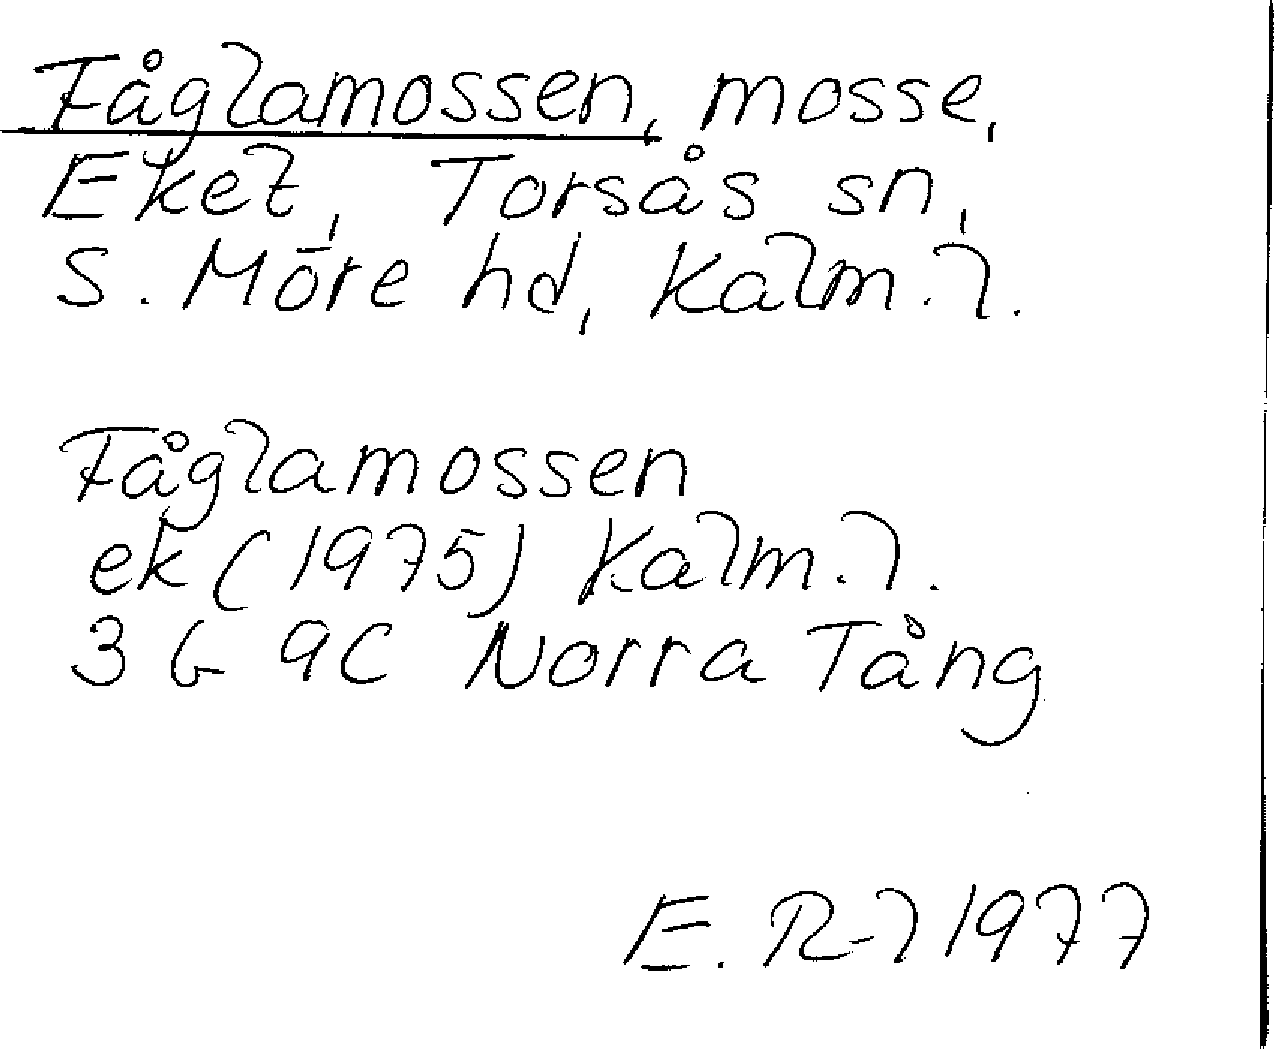 Fåglamossen, mosse,
Eket, Torsås sn,
S. Möre hd, Kalm. l.
Fåglamossen
ek (1975) Kalm. l.
3 G 9c Norra Tång
E. R-l 1977